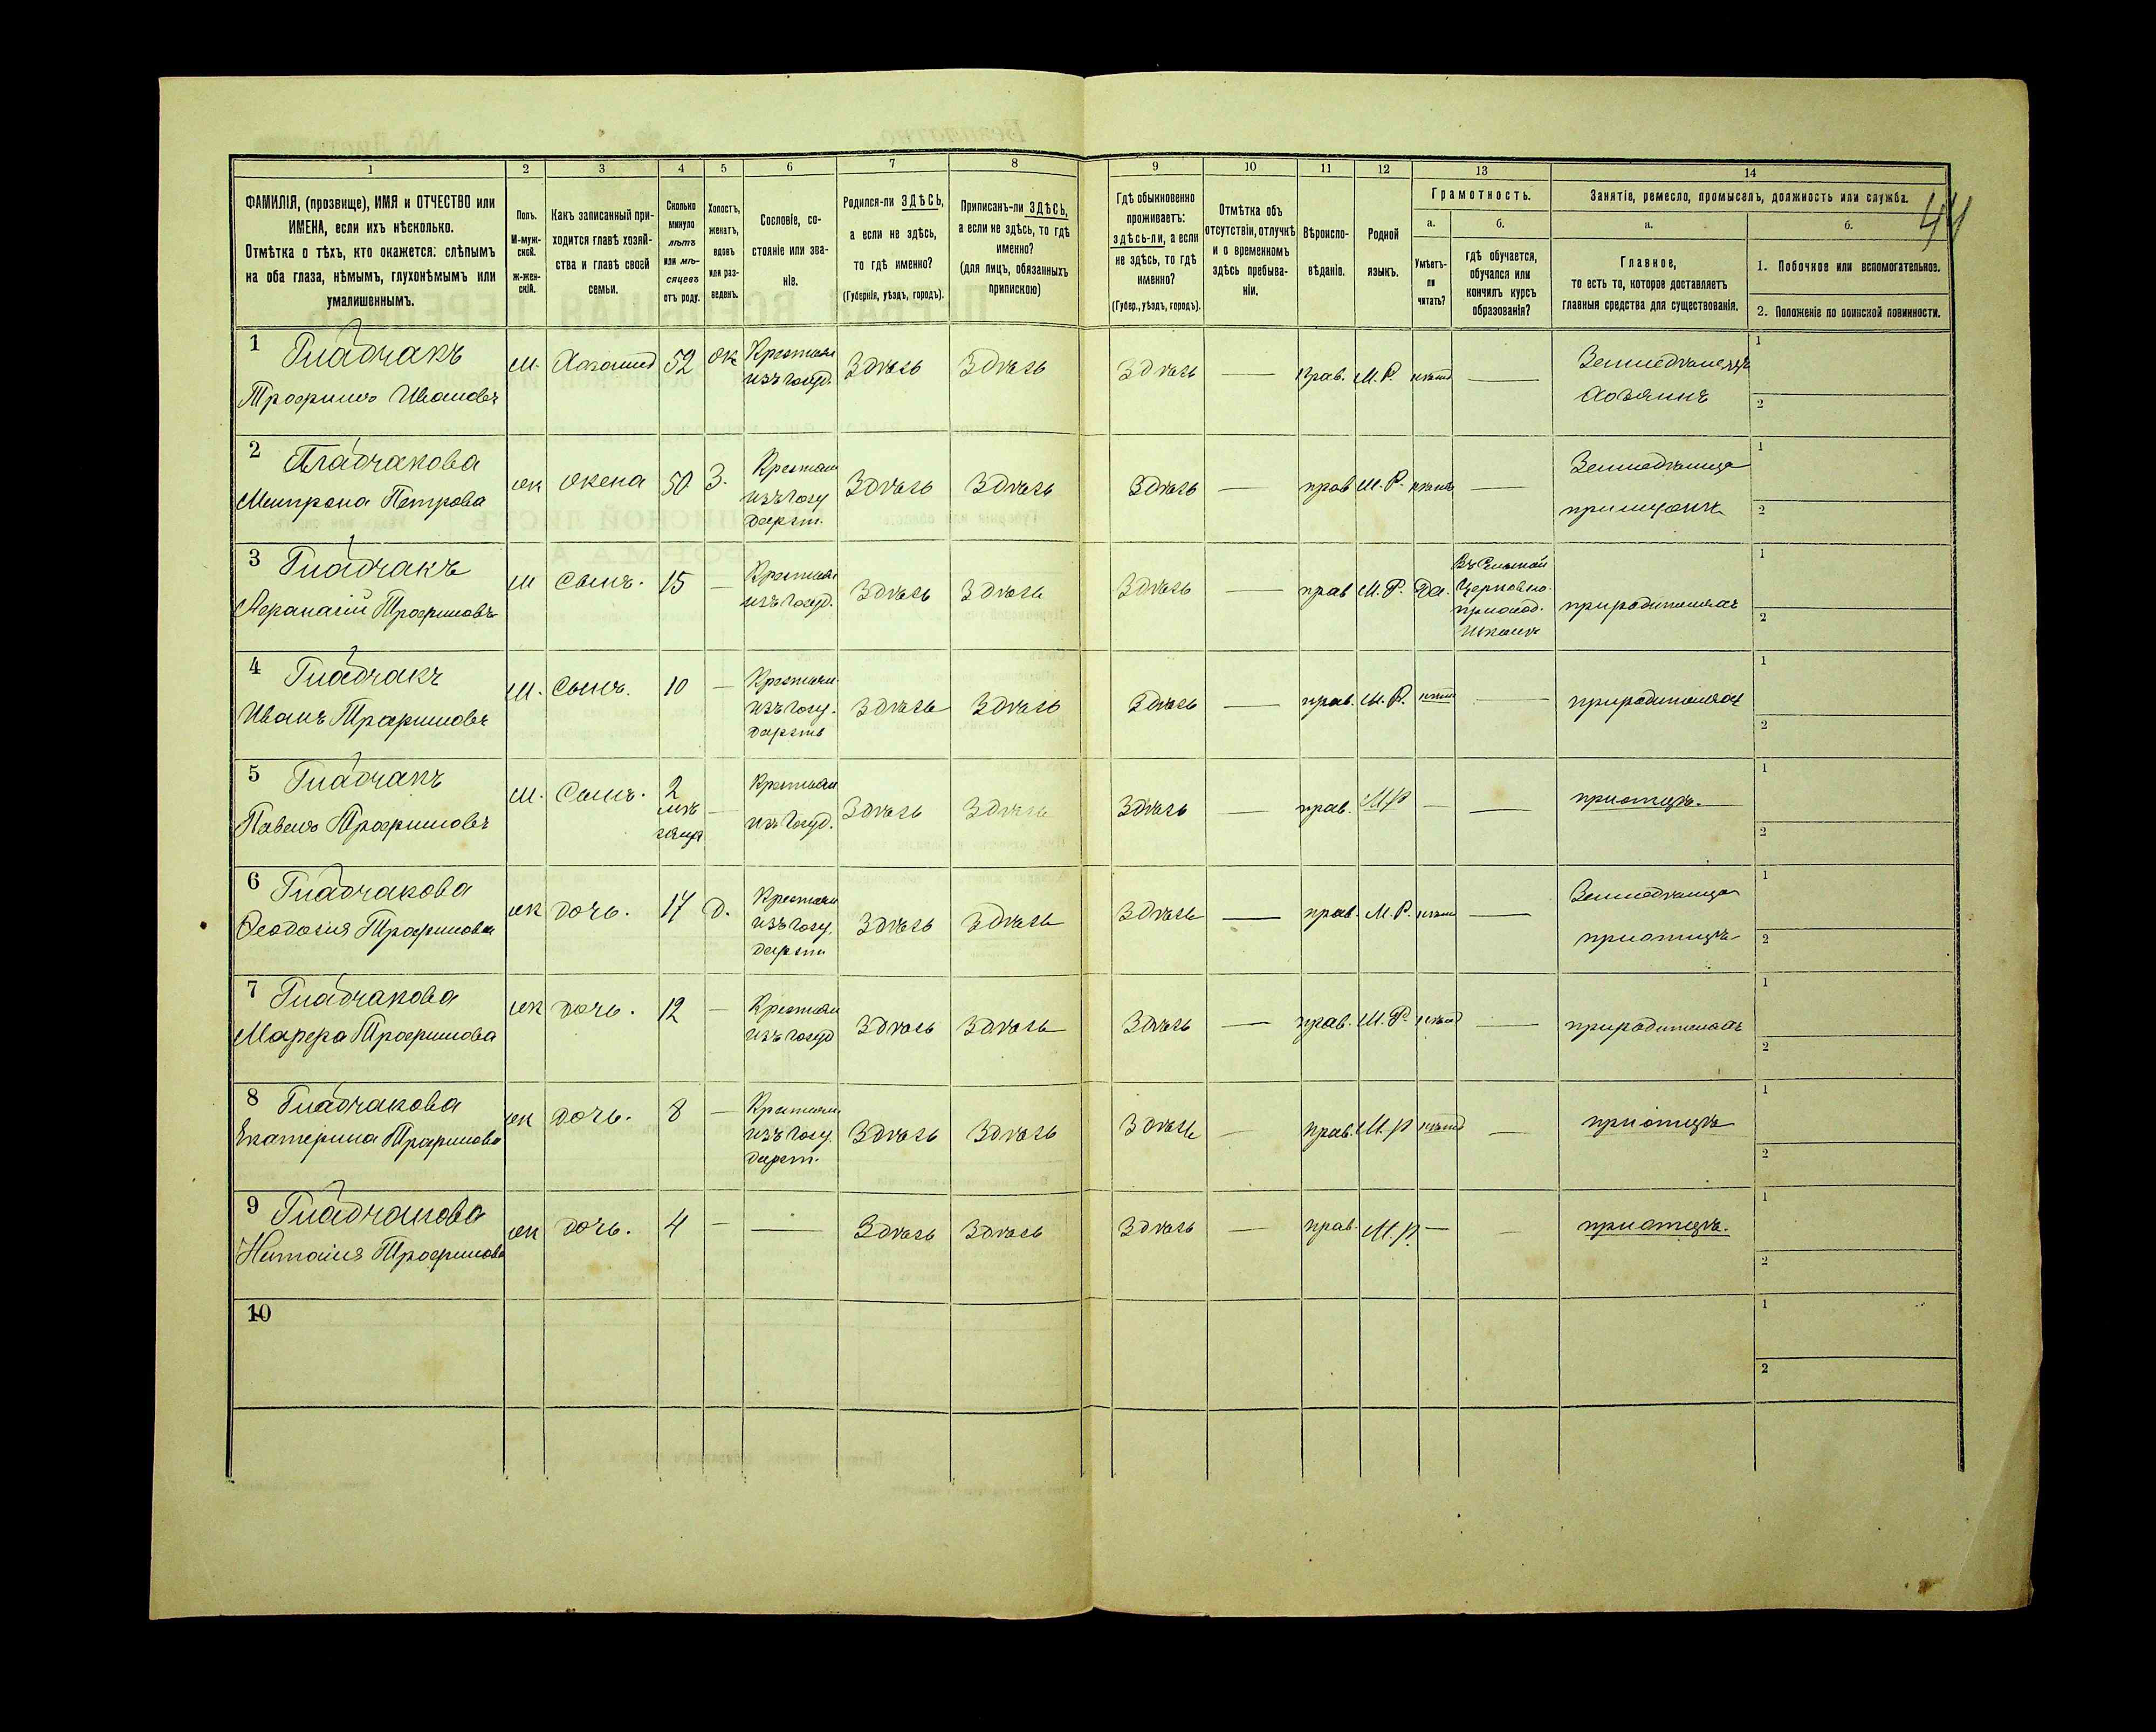 1 2 3 4 5 6 7 8 9 10 11 12 13 14
ФАМИЛІЯ, (прозвище), ИМЯ и ОТЧЕСТВО или
ИМЕНА, если ихъ нѣсколько.
Отмѣтка о тѣхъ, кто окажется: слѣпымъ
на оба глаза, нѣмымъ, глухонѣмымъ или
умалишеннымъ.
Полъ.
М-муж-
ской.
ж-жен-
скій.
Какъ записанный при-
ходится главѣ хозяй-
ства и главѣ своей
семьи.
Сколько
минуло
лѣтъ
или мѣ-
сяцевъ
отъ роду.
Холостъ,
женатъ,
вдовъ
или раз-
веденъ.
Сословіе, со-
стояніе или зва-
ніе.
Родился-ли ЗДѢСЬ,
а если не здѣсь,
то гдѣ именно?
(Губернія, уѣздъ, городъ).
Приписанъ-ли ЗДѢСЬ,
а если не здѣсь, то гдѣ
именно?
(для лицъ, обязанныхъ
припискою)
Гдѣ обыкновенно
проживаетъ:
здѣсь-ли, а если
не здѣсь, то гдѣ
именно?
(Губер., уѣздъ, городъ).
Отмѣтка объ
отсутствіи, отлучкѣ
и о временномъ
здѣсь пребыва-
ніи.
Вѣроиспо-
вѣданіе.
Родной
языкъ.
Грамотность.
а.
Умѣетъ-
ли
читать?
б.
гдѣ обучается,
обучался или
кончилъ курсъ
образованія?
Занятіе, ремесло, промыселъ, должность или служба.
44
а.
Главное,
то есть то, которое доставляетъ
главныя средства для существованія.
б.
1. Побочное или вспомогательное.
2. Положеніе по воинской повинности.
1
Трофимъ Ивановъ
м.
52
Крестьян
изъ госуд.
Здѣсь
Здѣсь
Здѣсь
—
прав.
М. Р.
нѣтъ
—
Земледѣлецъ
хозяинъ
1
2
2
Петрова
ж
жена
50
З.
Крестьян
изъ госу
дарст.
Здѣсь
Здѣсь
Здѣсь
—
прав
М. Р.
нѣтъ
—
Земледѣлица
1
2
3
Афанасій Трофимовъ
м
сынъ.
15
—
Крестьян
изъ госуд.
Здѣсь
Здѣсь
Здѣсь
—
прав
М. Р.
Да.
Церковно-
приход.
школѣ
при родителяхъ
1
2
4
Иванъ Трофимовъ
м.
сынъ.
10
—
Крестьян
изъ госу-
дарств
Здѣсь
Здѣсь
Здѣсь
—
прав.
М. Р.
нѣтъ
—
при родителяхъ
1
2
5
Павелъ Трофимовъ
м.
сынъ.
2
мѣ-
сяца
—
Крестьян
изъ госуд.
Здѣсь
Здѣсь
Здѣсь
—
прав.
М Р
—
—
при отцѣ.
1
2
6
Феодосія Трофимова
ж
дочь.
17
Д.
Крестьян
изъ госу.
дарств
Здѣсь
Здѣсь
Здѣсь
—
прав.
М. Р.
нѣтъ
—
Земледѣлица
при отцѣ
1
2
7
Марфа Трофимова
ж
дочь.
12
—
Крестьян
изъ госуд
Здѣсь
Здѣсь
Здѣсь
—
прав.
М. Р.
нѣтъ
—
при родителяхъ
1
2
8
Екатерина Трофимова
ж
дочь.
8
—
Крестьян
изъ госу.
дарст.
Здѣсь
Здѣсь
Здѣсь
—
прав.
М. р
нѣтъ
—
при отцѣ
1
2
9
Наталія Трофимова
ж
дочь.
4
—
—
Здѣсь
Здѣсь
Здѣсь
—
прав.
М. р.
—
—
при отцѣ.
1
2
10
1
2